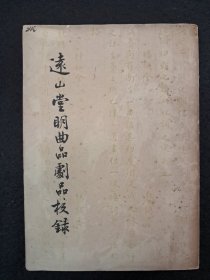 遠山堂明曲品劇品校錄